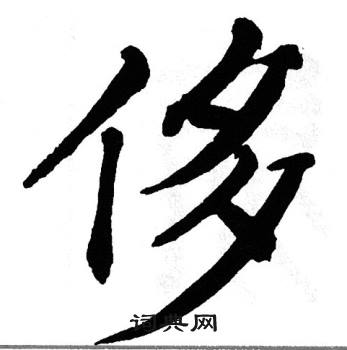 侈
词典网